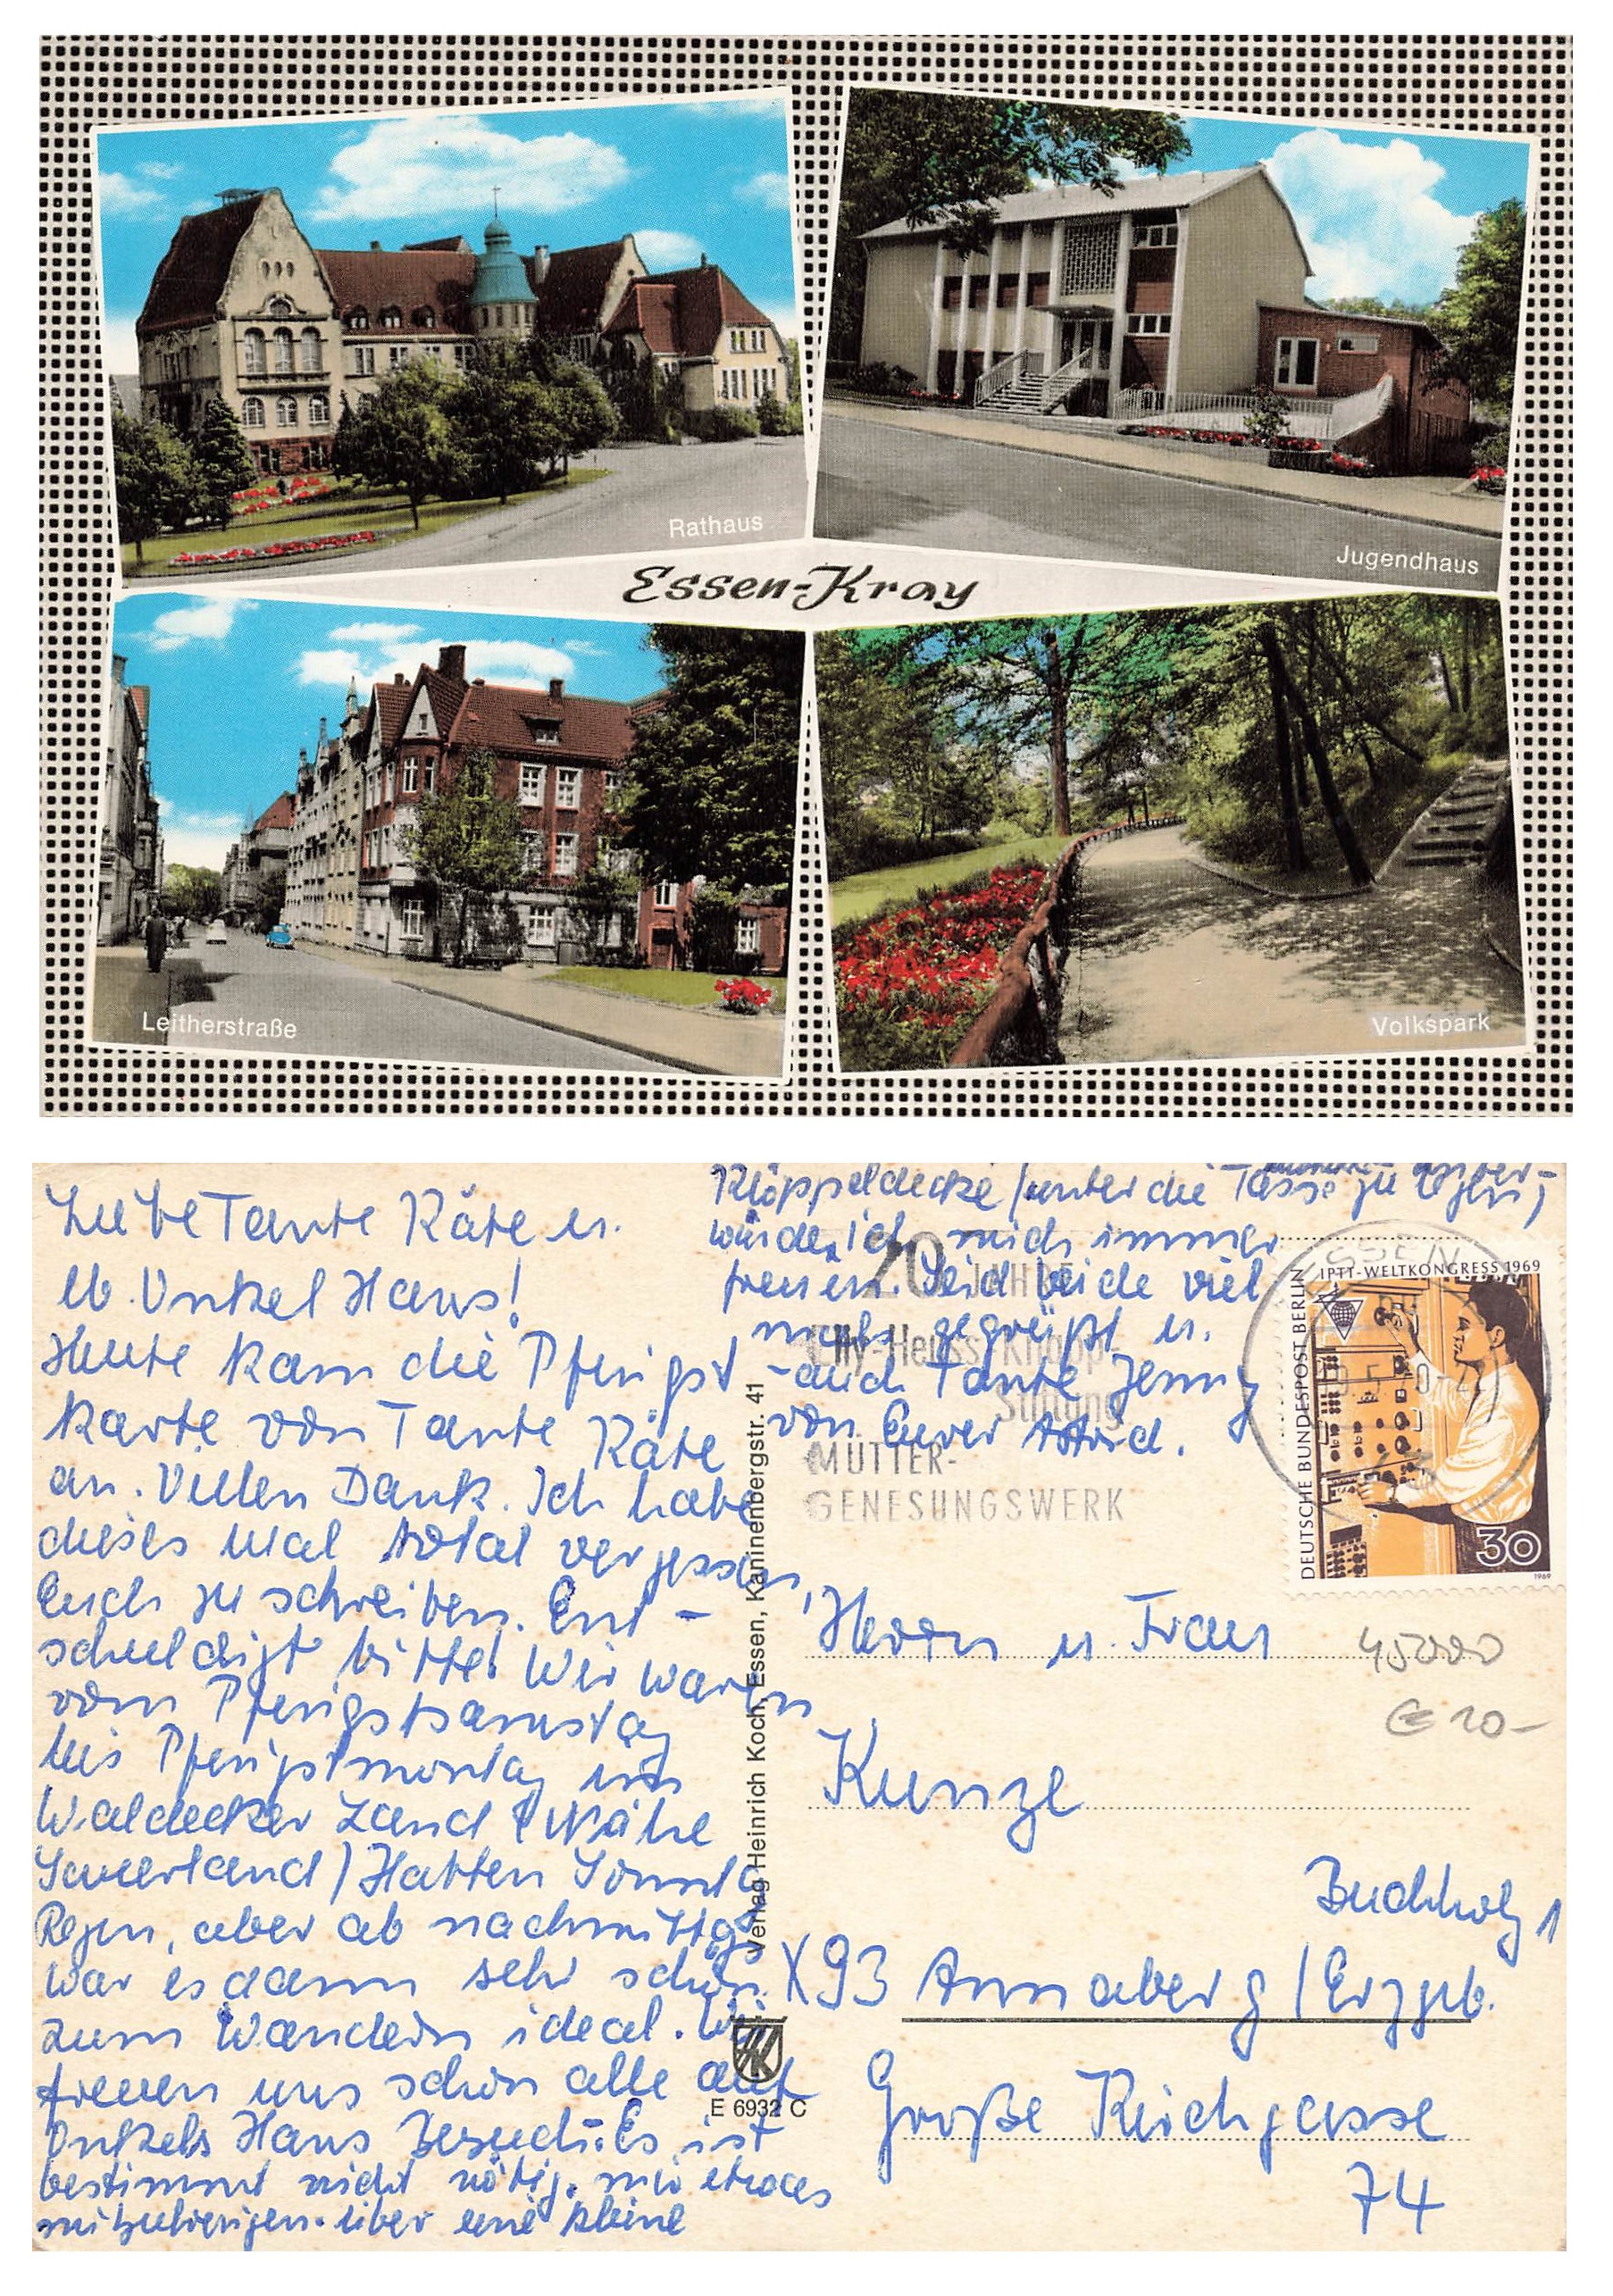 Rathaus
Jugendhaus
Essen-Kray
Leitherstraße
Volkspark
Liebe Tante Käte u.
lb. Onkel Hans!
Heute kam die Pfingst
karte von Tante Käte
an. Vielen Dank. Ich habe
dieses Mal total vergessen,
Euch zu schreiben. Ent-
schuldigt bitte! Wir waren
vom Pfingstsamstag
bis Pfingstmontag im
Waldecker Land (Nähe
Sauerland) Hatten Sonntag
Regen, aber ab nachmittags
war es dann sehr schön
zum Wandern ideal. Wir
freuen uns schon alle auf
Onkels Hans Besuch. Es ist
bestimmt nicht nötig, mir etwas
mitzubringen. über eine kleine
Klöppeldecke (unter die Tasse zu legen)
würde ich mich immer
freuen. Seid beide viel
mals gegrüßt u.
auch Tante Jenny
von Eurer Astrid.
Verlag Heinrich Koch, Essen, Kaninenbergstr. 41
E 6932 C
20 JAHRE
Elly-Heuss-Knapp-
Stiftung
MÜTTER-
GENESUNGSWERK
ESSEN
IPTT-WELTKONGRESS 1969
DEUTSCHE BUNDESPOST BERLIN
30
1969
Herrn u. Frau
45000
€ 10-
Kunze
Buchholz 1
X93 Annaberg / Erzgeb.
Große Kirchgasse
74